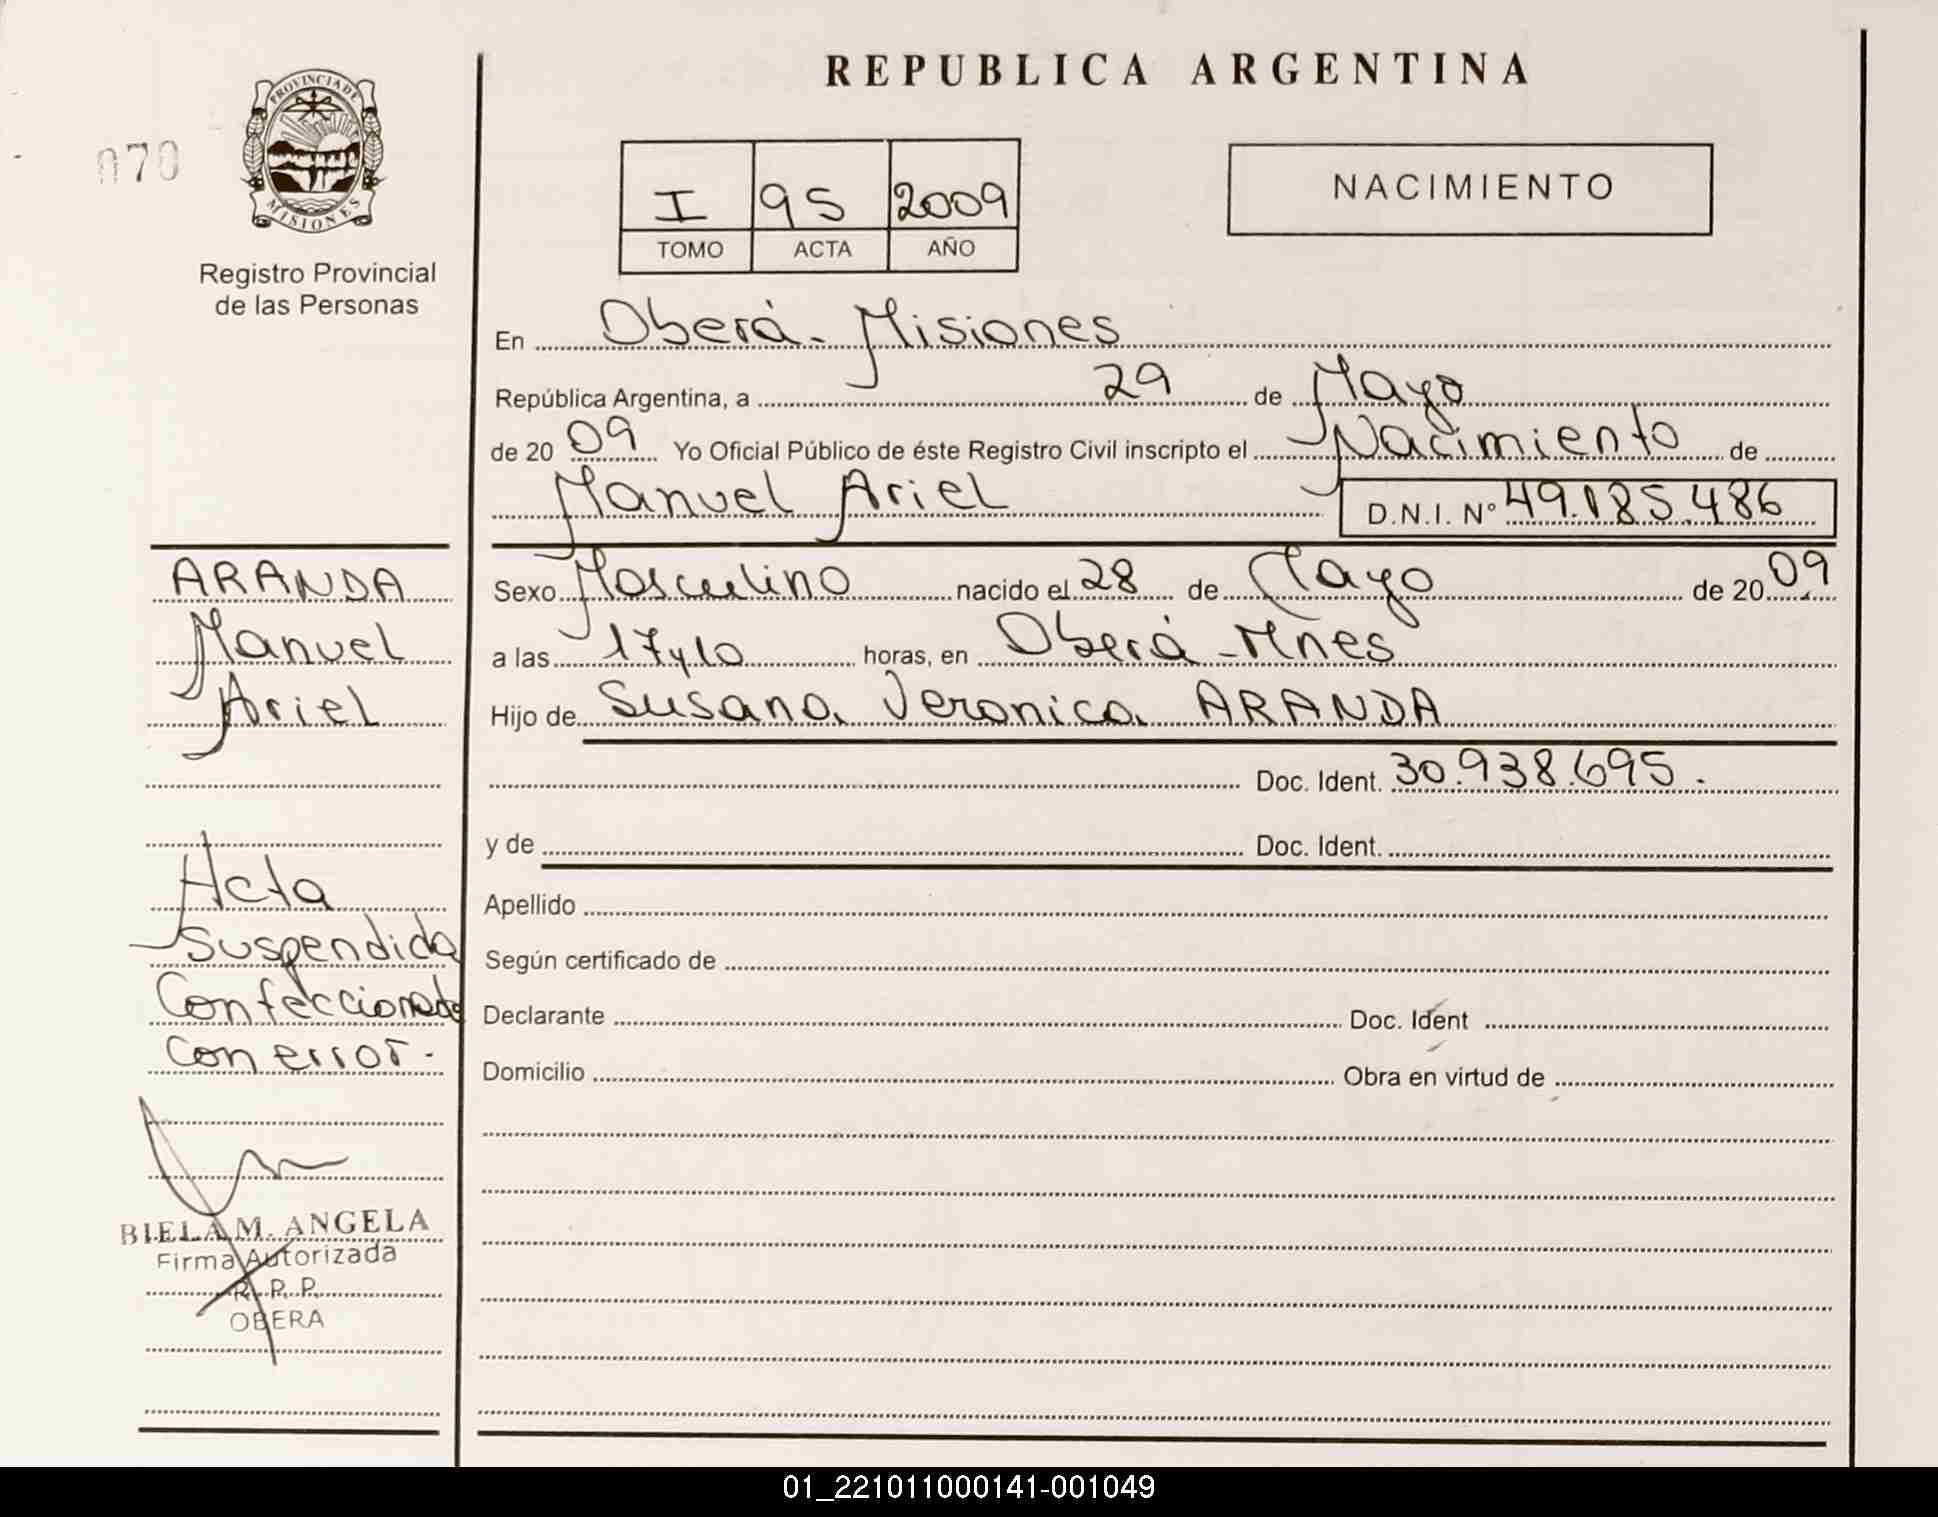 REPUBLICA ARGENTINA
PROVINCIA DE
MISIONES
070
Registro Provincial
de las Personas
I 95 2009
TOMO ACTA AÑO
NACIMIENTO
En Oberá - Misiones
República Argentina, a 29 de Mayo
de 20 09 Yo Oficial Público de éste Registro Civil inscripto el Nacimiento de
Manuel Ariel D.N.I. N° 49.185.486
Sexo Masculino nacido el 28 de Mayo de 20 09
a las 17 y 10 horas, en Oberá - Mnes
Hijo de Susana Veronica ARANDA
Doc. Ident. 30.938.695.
y de Doc. Ident.
Apellido
Según certificado de
Declarante Doc. Ident
Domicilio Obra en virtud de
ARANDA
Manuel
Ariel
Acta
Suspendida
Confeccionada
con error.-
BIELA M. ANGELA
Firma Autorizada
R. P. P.
OBERA
01_221011000141-001049